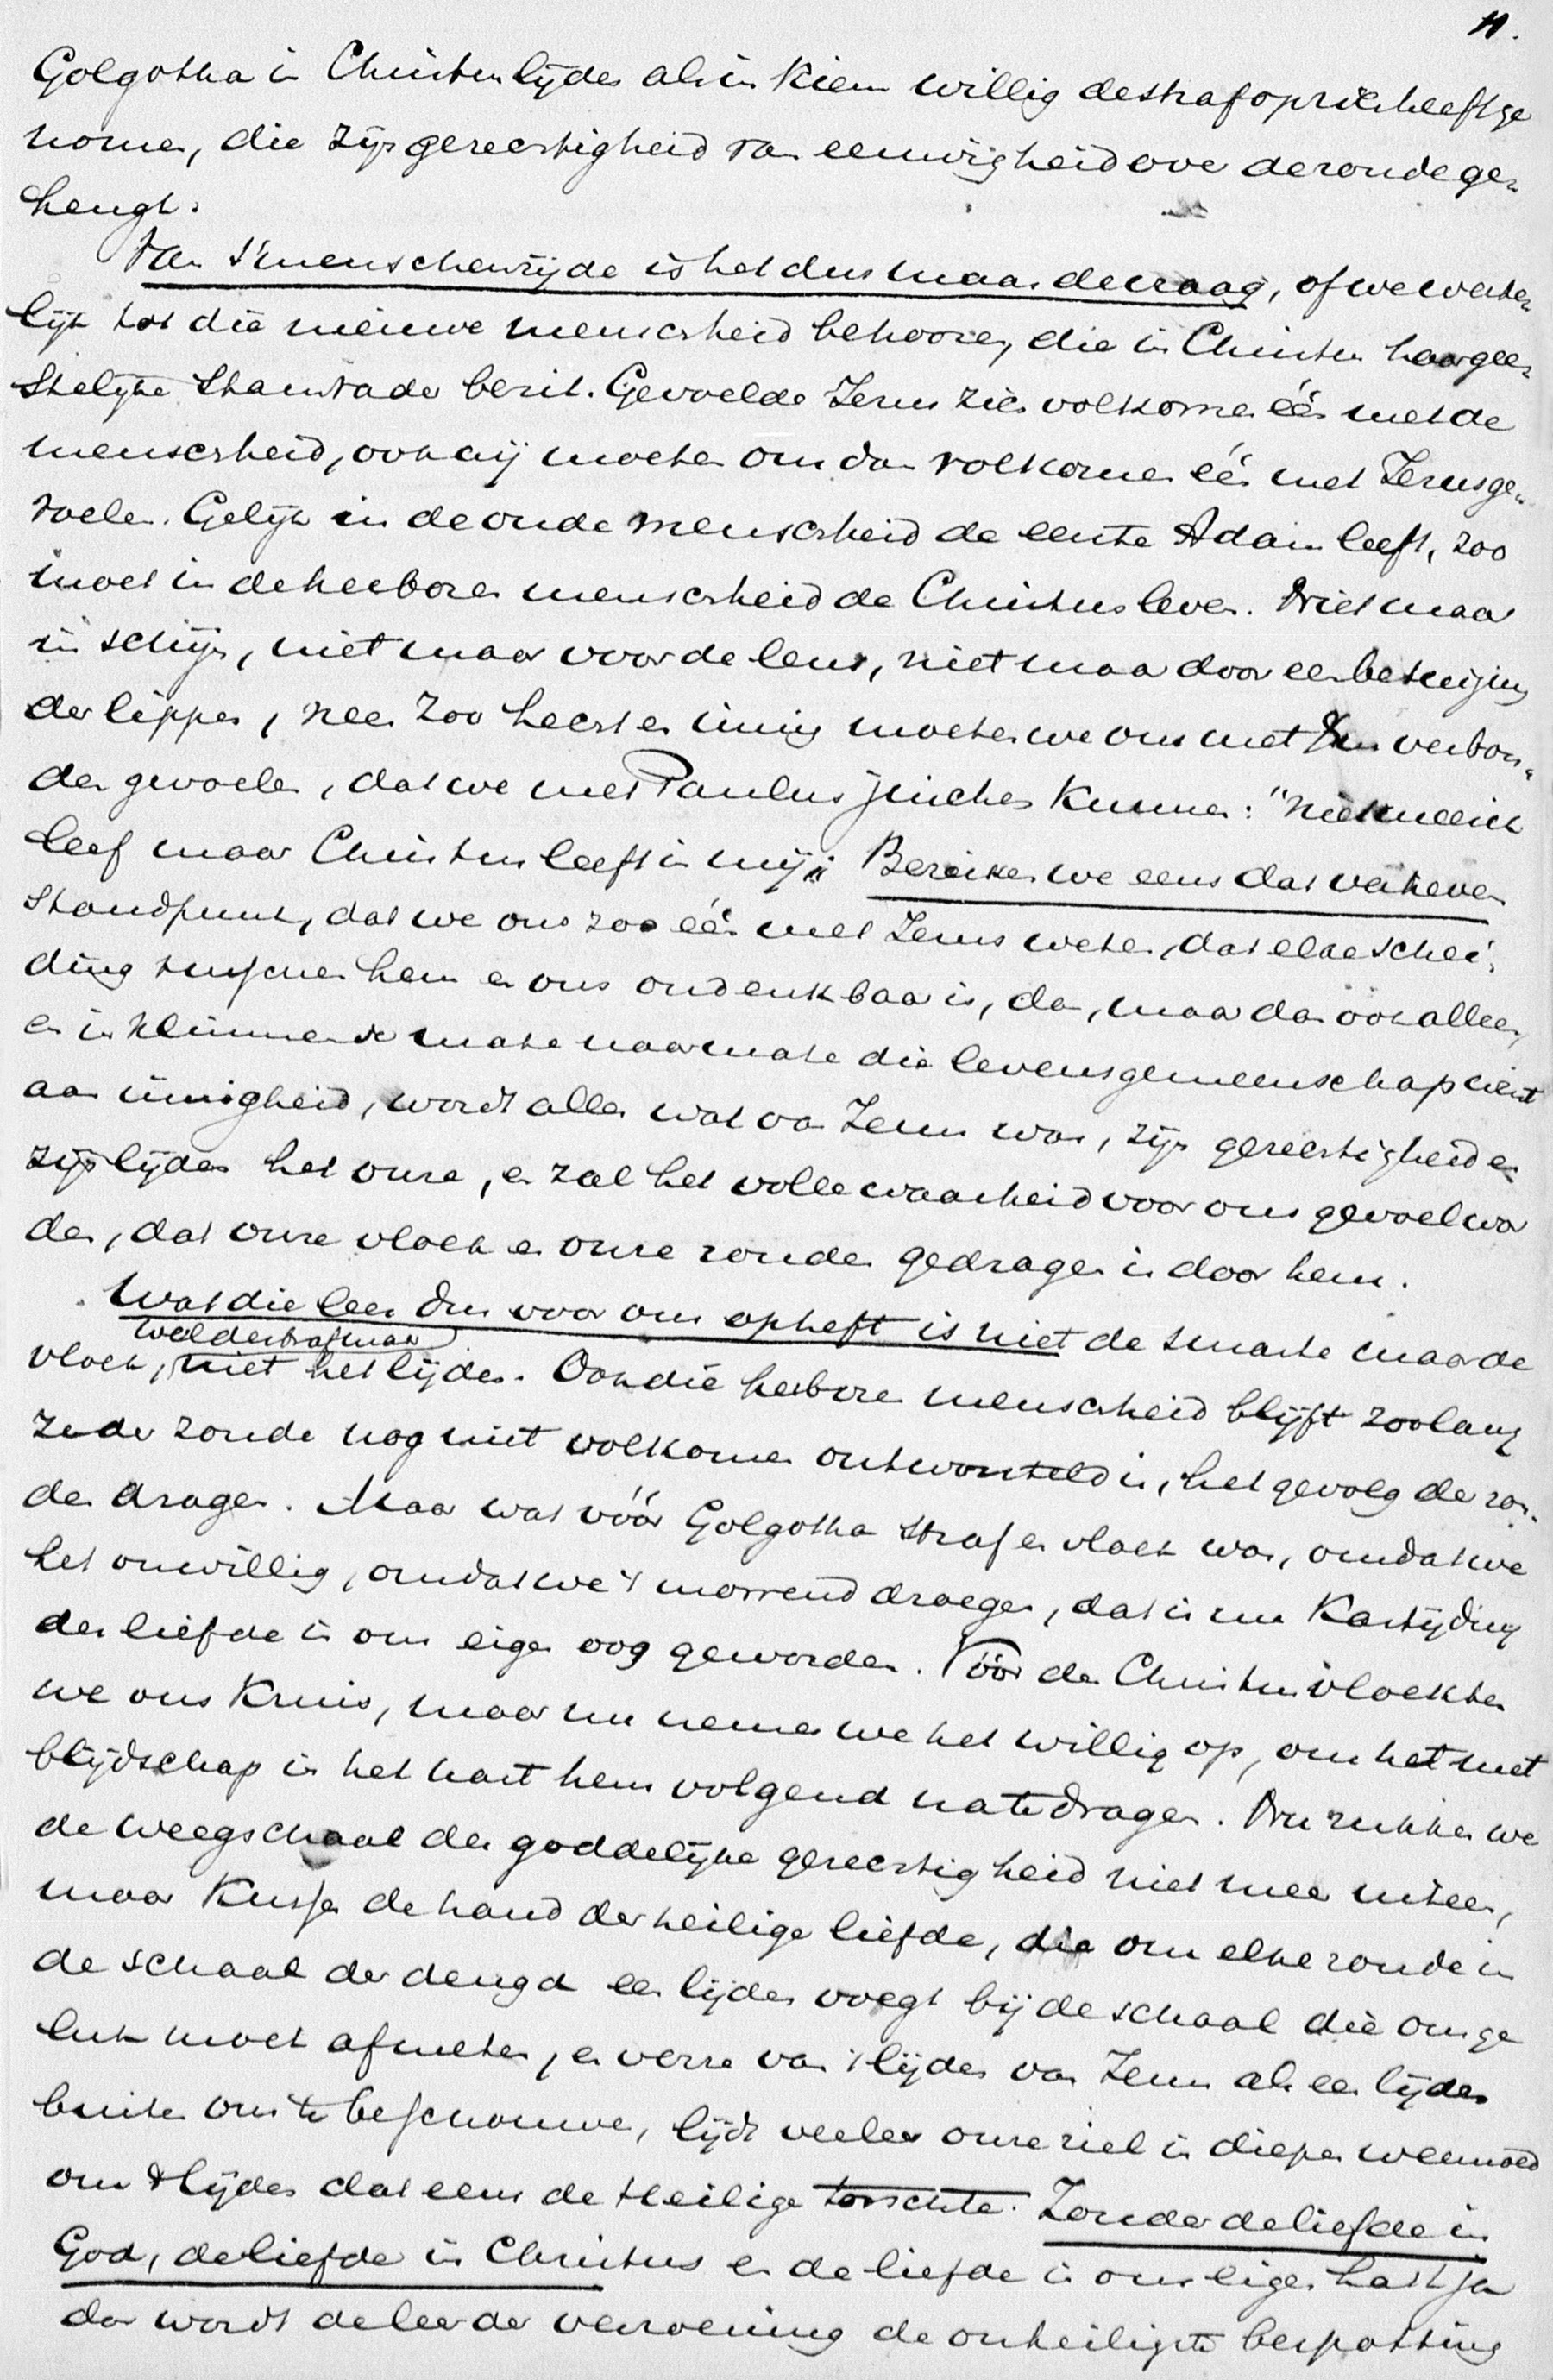 11.
Golgotha in Christus lijden als in Kiem willig de straf op zich heeft ge
nomen, die zijn gerechtigheid van eeuwigheid over de zonde ge=
hengt.
Van 's menschenzijde is het dus maar de vraag, of we werke=
lijk tot die nieuwe menscheid behooren, die in Christus haar gees=
telijke Stamvader bezit. Gevoelde Jezus zich volkomen één met de
menscheid, ook wij moeten ons dan volkomen één met Jezus ge=
voelen. Gelijk in de oude menscheid de eerste Adam leeft, zoo
moet in de herboren menscheid de Christus leven. Niet maar
in schijn, niet maar voor de leus, niet maar door een betuiging
der lippen, neen zoo hecht en innig moeten we ons met Hem verbon=
den gevoelen, dat we met Paulus juichen Kunnen: "niet meer ik
leef maar Christus leeft in mij". Bereiken we eens dat verheven
Standpunt, dat we ons zoo één met Jezus weten, dat elke schei=
ding tusschen hem en ons ondenkbaar is, dan, maar dan óók alleen,
en in klimmende mate naarmate die levensgemeenschap wint
aan innigheid, wordt alles wat van Jezus was, zijn gerechtigheid en
zijn lijden het onze, en zal het volle waarheid voor ons gevoel wor
den, dat onze vloek en onze zonden gedragen is door hem.
Wat die leer dus voor ons opheft is niet de smarte maar de
vloek, wel de straf maar niet het lijden. Ook die herboren menscheid blijft zoolang
ze der zonde nog niet volkomen ontworsteld is, het gevolg der zon=
de dragen. Maar wat vóór Golgotha straf en vloek was, omdat we
het onwillig, omdat we 't morrend droegen, dat is nu Kastijding
der liefde in ons eigen oog geworden. Vóór den Christus vloekten
we ons Kruis, maar nu nemen we het willig op, om het met
blijdschap in het hart hem volgend na te dragen. Nu rukken we
de weegschaal der goddelijke gerechtigheid niet meer uiteen,
maar Kussen de hand der heilige liefde, die om elke zonde in
de schaal der deugd een lijden voegt bij de schaal die ons ge
luk moet afmeten, en verre van 't lijden van Jezus als een lijden
buiten ons te beschouwen, lijdt veeleer onze ziel in diepen weemoed
om 't lijden dat eens de Heilige torschte. Zonder de liefde in
God, de liefde in Christus en de liefde in ons eigen hart ja
dan wordt de leer der verzoening de onheiligste bespotting